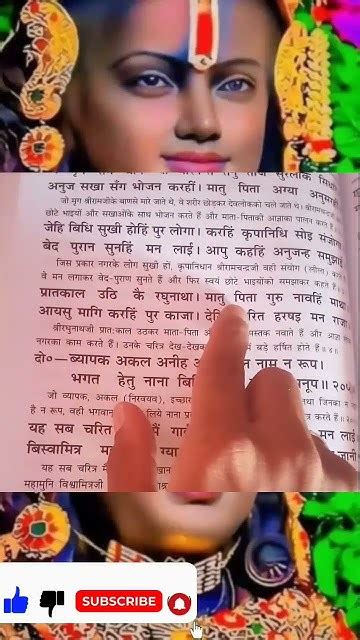 अनुज सखा सँग भोजन करहीं। मातु पिता अग्या
जो मृग श्रीरामजीके बाणसे मारे जाते थे, वे शरीर छोड़कर देवलोकको चले जाते थे।
छोटे भाइयों और सखाओंके साथ भोजन करते हैं और माता-पिताकी आज्ञाका पालन करते हैं
जेहि बिधि सुखी होहिं पुर लोगा। करहिं कृपानिधि सोइ संजोगा
बेद पुरान सुनहिं मन लाई। आपु कहहिं अनुजन्ह समुझाई
जिस प्रकार नगरके लोग सुखी हों, कृपानिधान श्रीरामचन्द्रजी वही संयोग (लीला) करते
वे मन लगाकर वेद-पुराण सुनते हैं और फिर स्वयं छोटे भाइयोंको समझाकर कहते हैं
प्रातकाल उठि कै रघुनाथा। मातु पिता गुरु नावहिं माथा
आयसु मागि करहिं पुर काजा। रित हरषइ मन राजा
श्रीरघुनाथजी प्रातःकाल उठकर माता-पिता मस्तक नवाते हैं और आज्ञा
नगरका काम करते हैं। उनके चरित्र देख-देखकर में बड़े हर्षित होते हैं॥ ४॥
दो०—ब्यापक अकल अनीह नाम न रूप।
भगत हेतु नाना बि नूप॥ २०५
जो व्यापक, अकल (निरवयव), इच्छा तथा जिनका न
है न रूप, वही भगवान् लिये नाना करते हैं॥
यह सब चरित मैं गा मन लाई
बिस्वामित्र ग्या
यह सब चरित्र
महामुनि विश्वामित्रजी
SUBSCRIBE